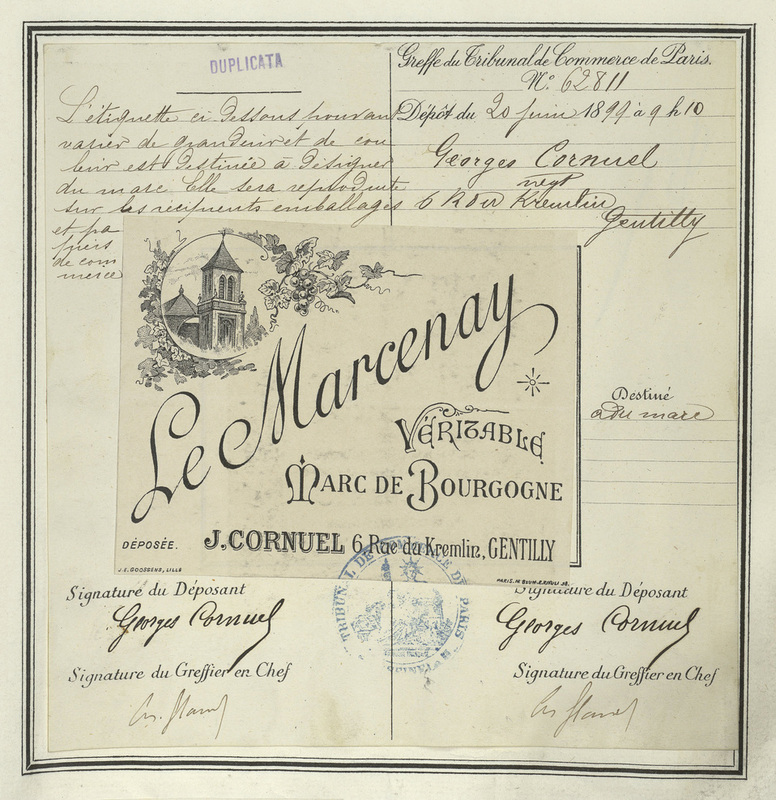 DUPLICATA
L'étiquette ci dessous pouvant
varier de grandeur et de cou
leur est destinée à désigner
du marc. Elle sera reproduite
sur les récipients emballages
et pa
piers
de com
merce
Greffe du Tribunal de Commerce de Paris.
N° 62811
Dépôt du 20 juin 1899 à 9 h 10
Georges Cornuel
negt
6 R du Kremlin
Gentilly
Le Marcenay
VÉRITABLE
MARC DE BOURGOGNE
DÉPOSÉE.
J. CORNUEL 6, Rue du Kremlin, GENTILLY
J.E. GOOSSENS, LILLE
Destiné
à du marc
Signature du Déposant
Georges Cornuel
Signature du Greffier en Chef
PARIS.
Signature du Déposant
Georges Cornuel
Signature du Greffier en Chef
TRIBUNAL DE COMMERCE DE PARIS